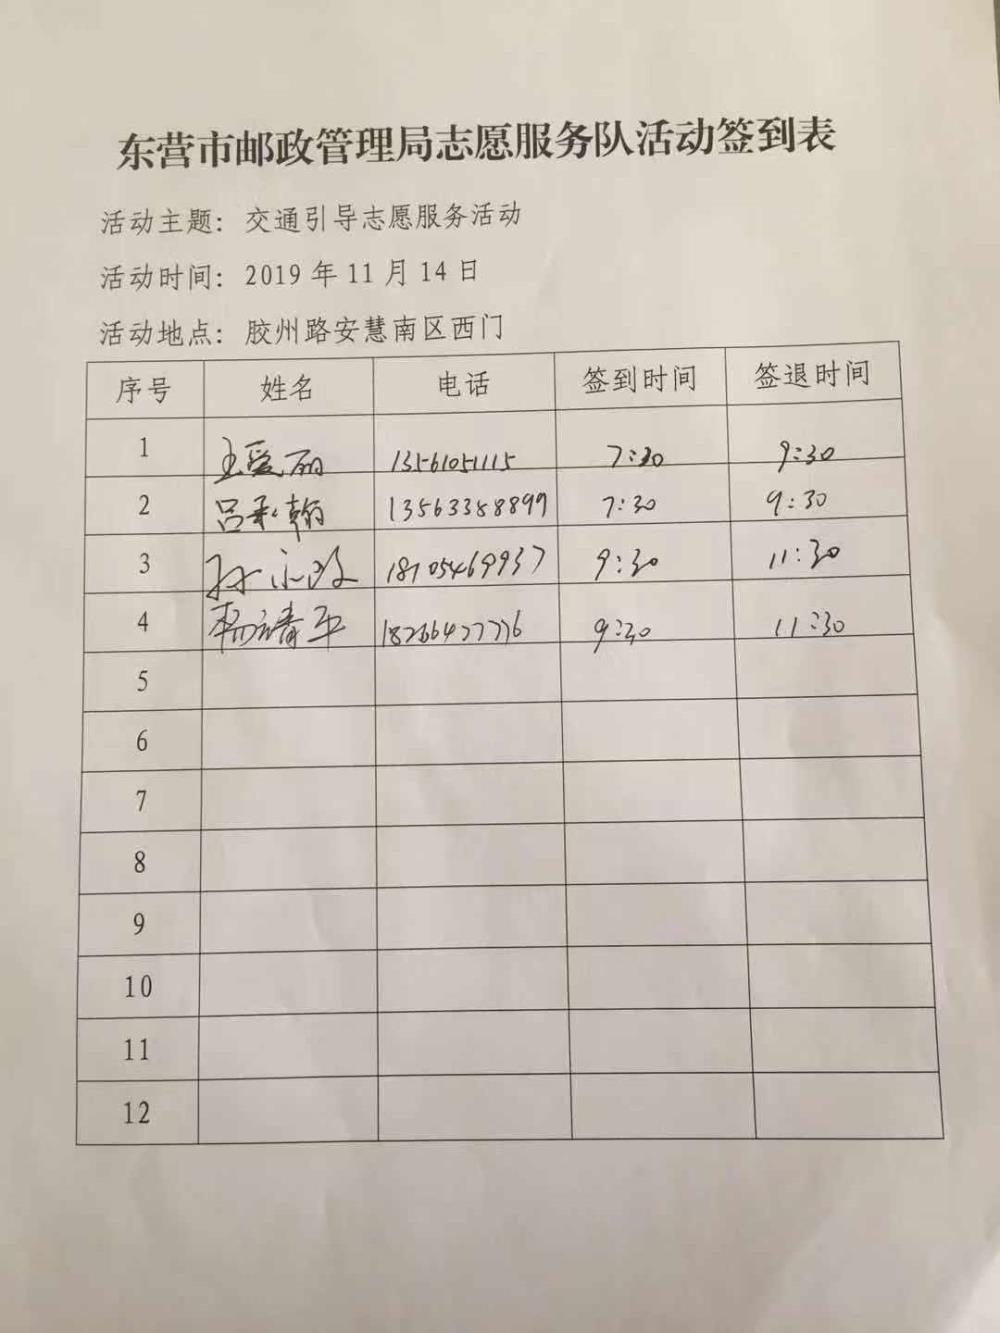 东营市邮政管理局志愿服务队活动签到表
活动主题: 交通引导志愿服务活动
活动时间: 2019 年 11 月 14 日
活动地点: 胶州路安慧南区西门
序号 姓名 电话 签到时间 签退时间
1 王爱丽 13561051115 7:30 9:30
2 吕承翰 13563358899 7:30 9:30
3 孙 18105469937 9:30 11:30
4 杨靖平 18266477776 9:30 11:30
5
6
7
8
9
10
11
12